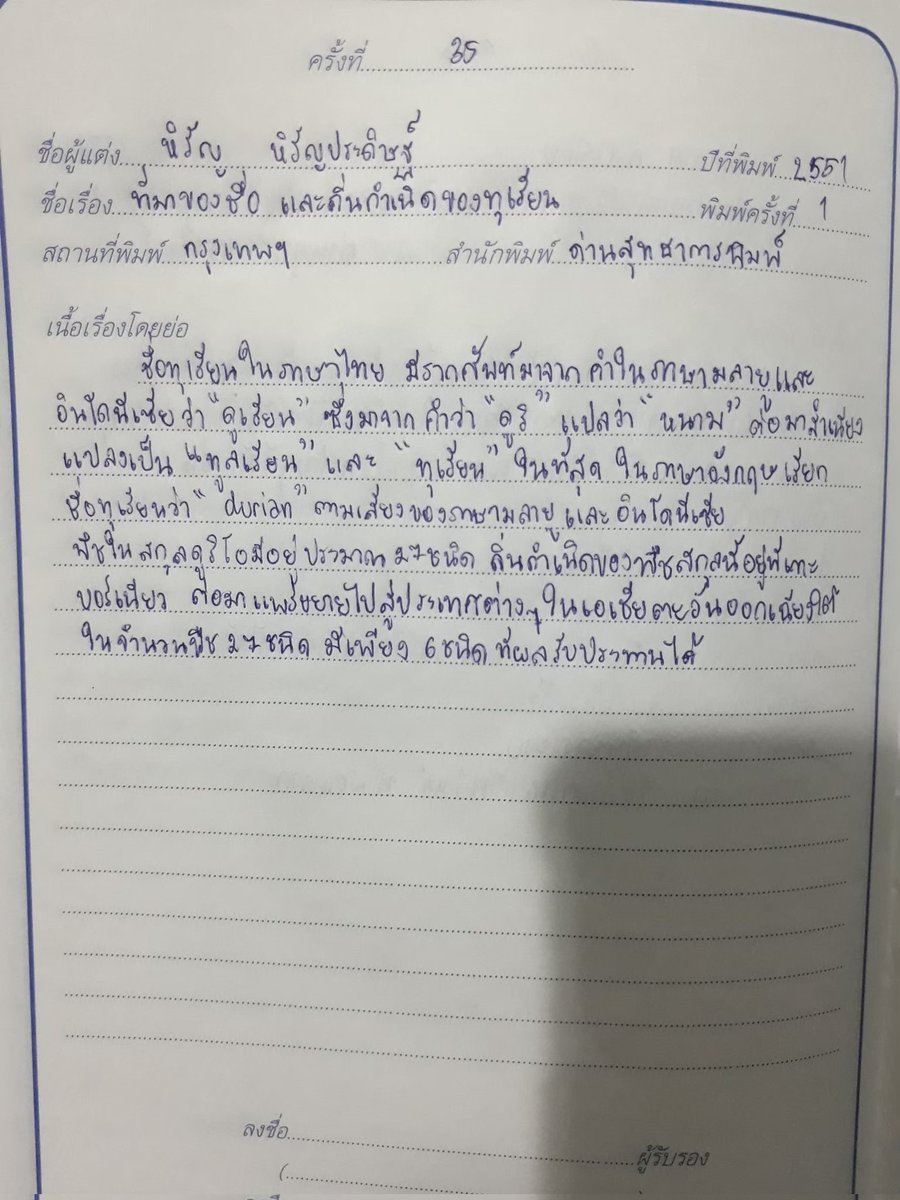 ครั้งที่ 35
ชื่อผู้แต่ง หิรัญ หิรัญประดิษฐ์ ปีที่พิมพ์ 2551
ชื่อเรื่อง ที่มาของชื่อ และถิ่นกำเนิดของทุเรียน พิมพ์ครั้งที่ 1
สถานที่พิมพ์ กรุงเทพฯ สำนักพิมพ์ ด่านสุทธาการพิมพ์
เนื้อเรื่องโดยย่อ
ชื่อทุเรียนในภาษาไทย มีรากศัพท์มาจาก คำในภาษามลายูและ
อินโดนีเซีย ว่า "ดูเรียน" ซึ่งมาจาก คำว่า "ดูรี" แปลว่า "หนาม" ต่อมาสำเนียง
แปลงเป็น "ทูลเรียน" และ "ทุเรียน" ในที่สุด ในภาษาอังกฤษเรียก
ชื่อทุเรียนว่า "durian" ตามเสียงของภาษามลายูและอินโดนีเซีย
พืชในสกุลดูริโอมีอยู่ประมาณ 27ชนิด ถิ่นกำเนิดของพืชสกุลนี้อยู่ที่เกาะ
บอร์เนียว ต่อมาแพร่ขยายไปสู่ประเทศต่างๆในเอเชียตะวันออกเฉียงใต้
ในจำนวนพืช 27ชนิด มีเพียง 6ชนิด ที่ผลรับประทานได้
ลงชื่อ ผู้รับรอง
(